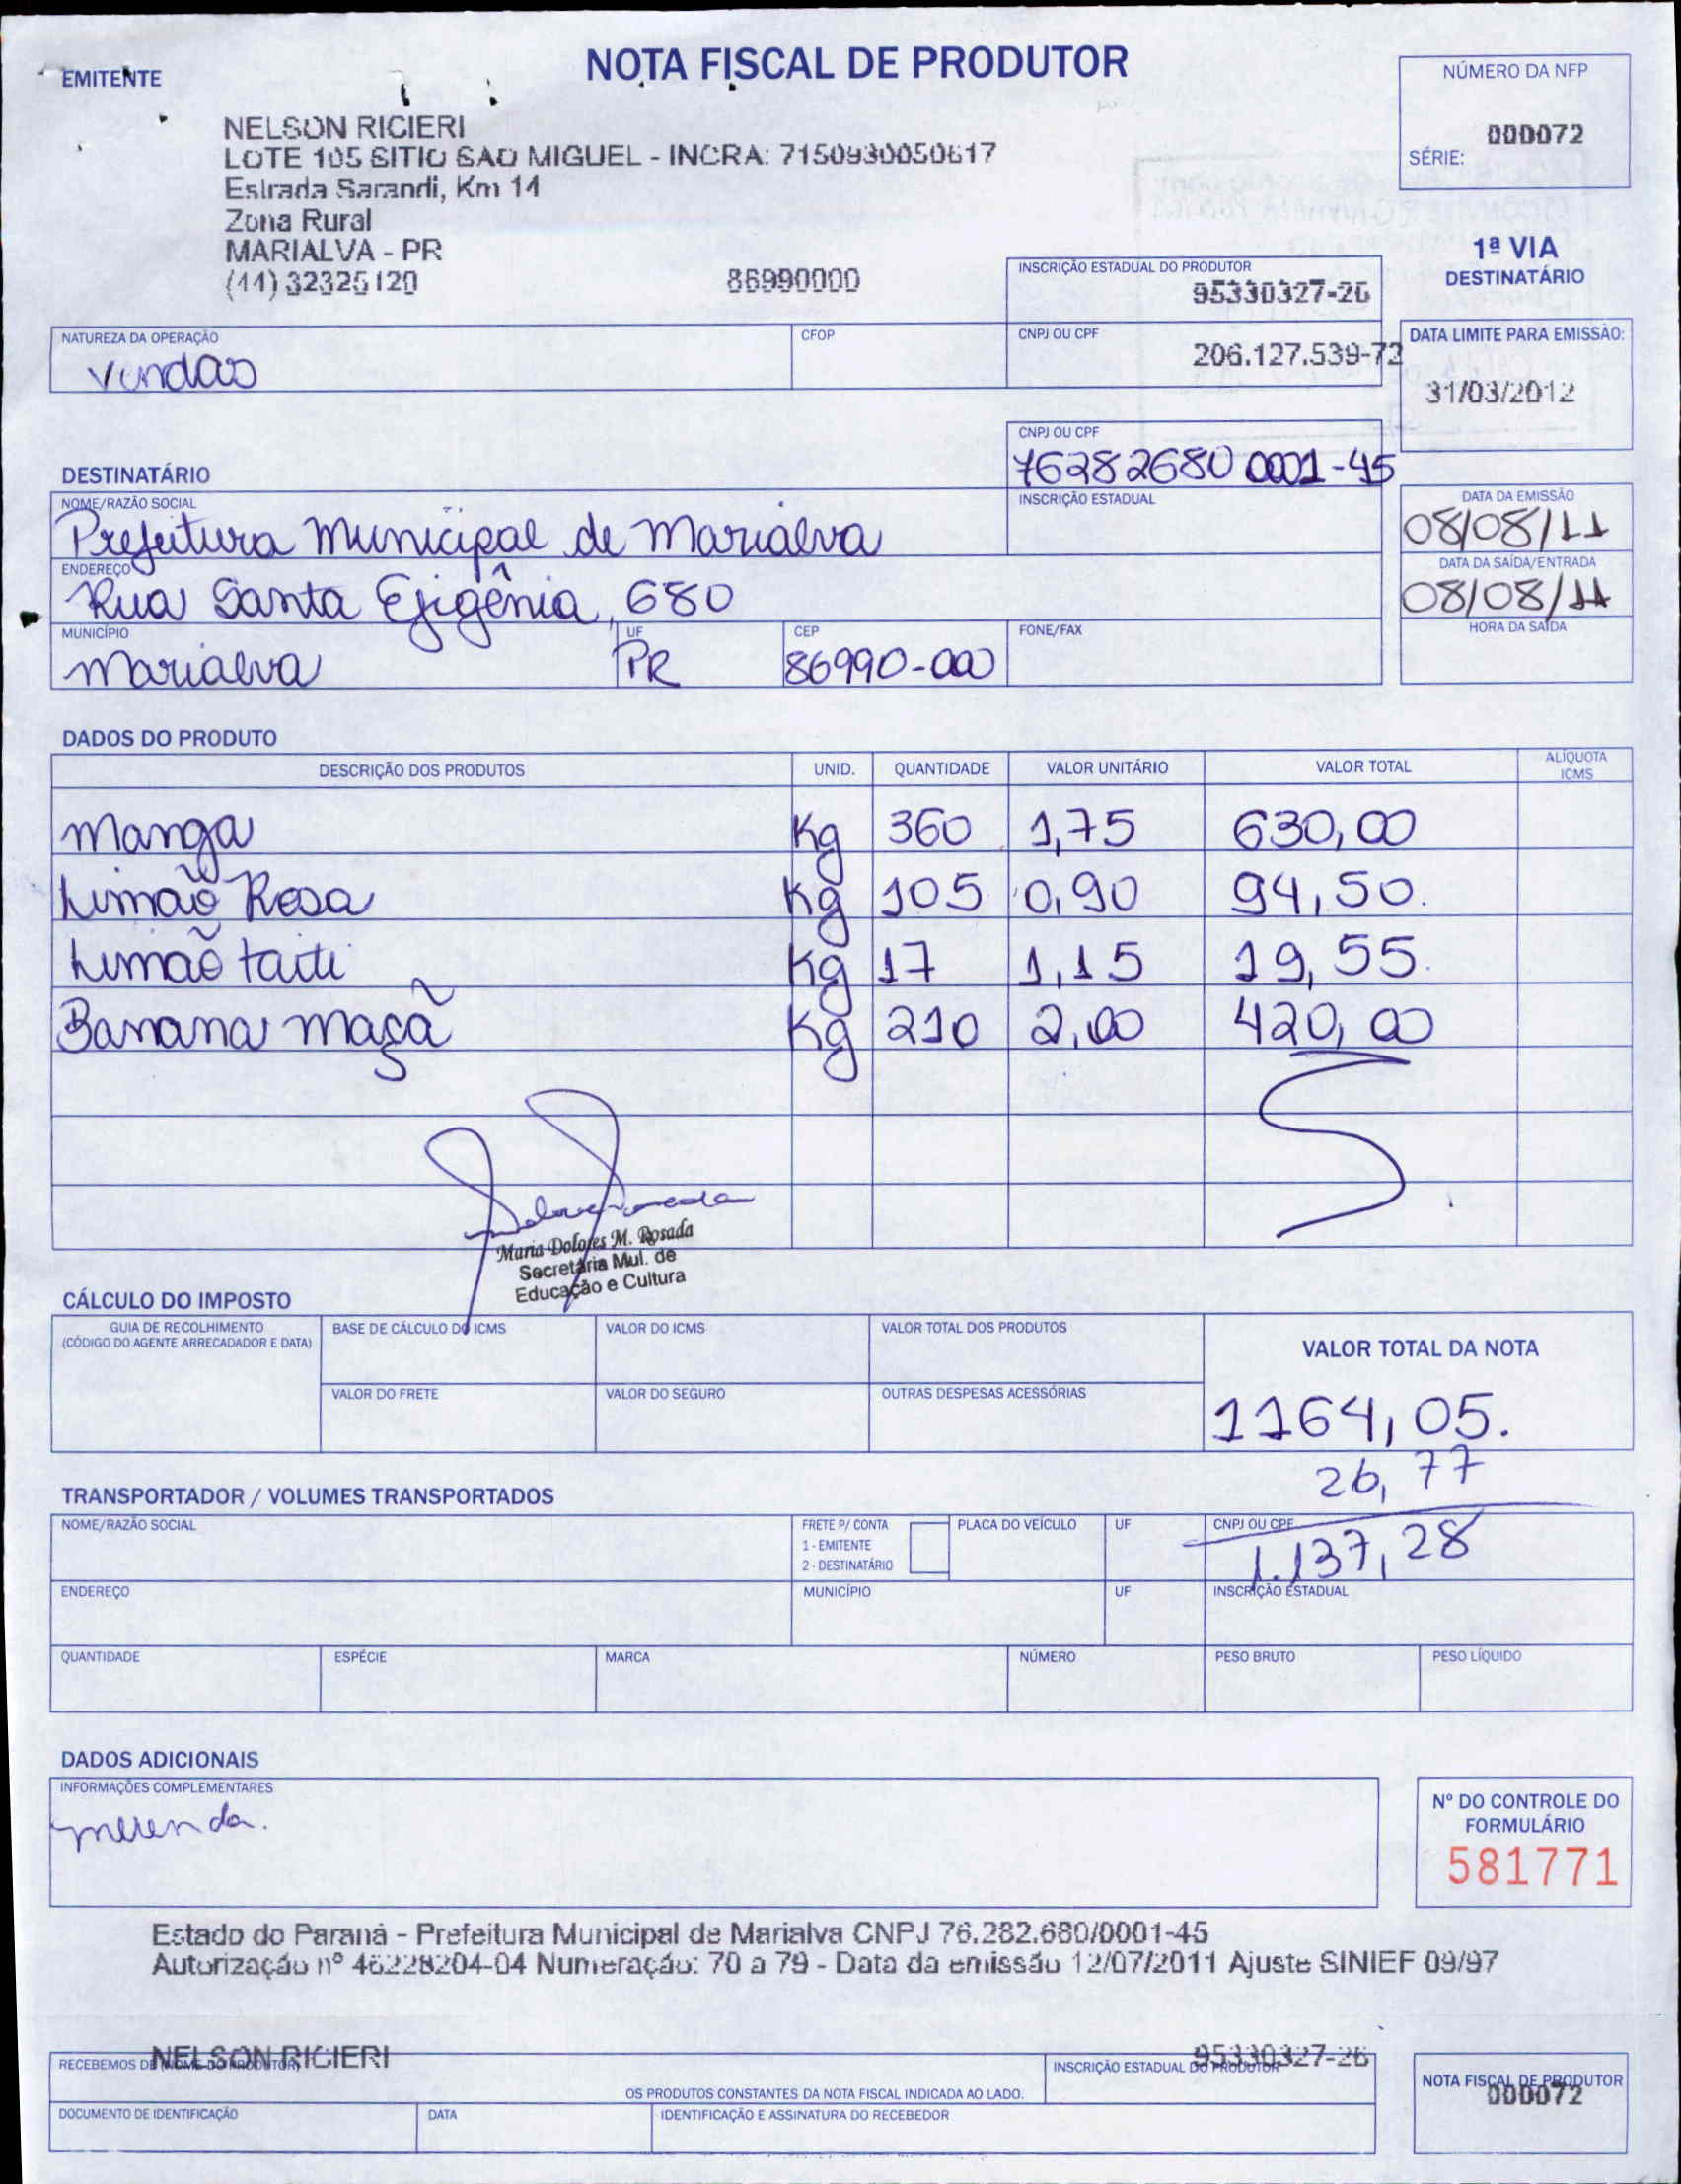 NOTA FISCAL DE PRODUTOR
EMITENTE
NÚMERO DA NFP
000072
SÉRIE:
NELSON RICIERI
LOTE 105 SITIO SAO MIGUEL - INCRA: 7150930050617
Estrada Sarandi, Km 14
Zona Rural
MARIALVA - PR
(44) 32325120 86990000
1ª VIA
DESTINATÁRIO
INSCRIÇÃO ESTADUAL DO PRODUTOR
95330327-26
NATUREZA DA OPERAÇÃO CFOP CNPJ OU CPF DATA LIMITE PARA EMISSÃO:
vendas 206.127.539-72
31/03/2012
CNPJ OU CPF
76282680 0001-45
DESTINATÁRIO
NOME/RAZÃO SOCIAL INSCRIÇÃO ESTADUAL DATA DA EMISSÃO
Prefeitura Municipal de Marialva 08/08/11
ENDEREÇO DATA DA SAÍDA/ENTRADA
Rua Santa Efigênia, 680 08/08/11
MUNICÍPIO UF CEP FONE/FAX HORA DA SAÍDA
Marialva PR 86990-000
DADOS DO PRODUTO
DESCRIÇÃO DOS PRODUTOS UNID. QUANTIDADE VALOR UNITÁRIO VALOR TOTAL ALÍQUOTA ICMS
Manga Kg 360 1,75 630,00
Limão Rosa Kg 105 0,90 94,50.
Limão taiti Kg 17 1,15 19,55.
Banana maçã Kg 210 2,00 420,00
Maria Dolores M. Rosada
Secretária Mul. de
Educação e Cultura
CÁLCULO DO IMPOSTO
GUIA DE RECOLHIMENTO
(CÓDIGO DO AGENTE ARRECADADOR E DATA)
BASE DE CÁLCULO DO ICMS VALOR DO ICMS VALOR TOTAL DOS PRODUTOS
VALOR TOTAL DA NOTA
VALOR DO FRETE VALOR DO SEGURO OUTRAS DESPESAS ACESSÓRIAS
1164,05.
26,77
1.137,28
TRANSPORTADOR / VOLUMES TRANSPORTADOS
NOME/RAZÃO SOCIAL FRETE P/ CONTA PLACA DO VEÍCULO UF CNPJ OU CPF
1 - EMITENTE
2 - DESTINATÁRIO
ENDEREÇO MUNICÍPIO UF INSCRIÇÃO ESTADUAL
QUANTIDADE ESPÉCIE MARCA NÚMERO PESO BRUTO PESO LÍQUIDO
DADOS ADICIONAIS
INFORMAÇÕES COMPLEMENTARES
merenda.
Nº DO CONTROLE DO
FORMULÁRIO
581771
Estado do Paraná - Prefeitura Municipal de Marialva CNPJ 76.282.680/0001-45
Autorização nº 46228204-04 Numeração: 70 a 79 - Data da emissão 12/07/2011 Ajuste SINIEF 09/97
RECEBEMOS DE (NOME DO PRODUTOR) NELSON RICIERI
INSCRIÇÃO ESTADUAL DO PRODUTOR 95330327-26
OS PRODUTOS CONSTANTES DA NOTA FISCAL INDICADA AO LADO.
NOTA FISCAL DE PRODUTOR
000072
DOCUMENTO DE IDENTIFICAÇÃO DATA IDENTIFICAÇÃO E ASSINATURA DO RECEBEDOR